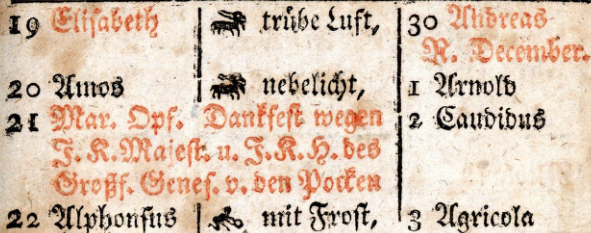 19 Elisabeth trübe Luft, 30 Andreas
N. December.
20 Amos nebelicht, 1 Arnold
21 Mar. Opf. Dankfest wegen 2 Candidus
J. K. Majest. u. J. K. H. des
Großf. Genes. v. den Pocken
22 Alphonsus mit Frost, 3 Agricola